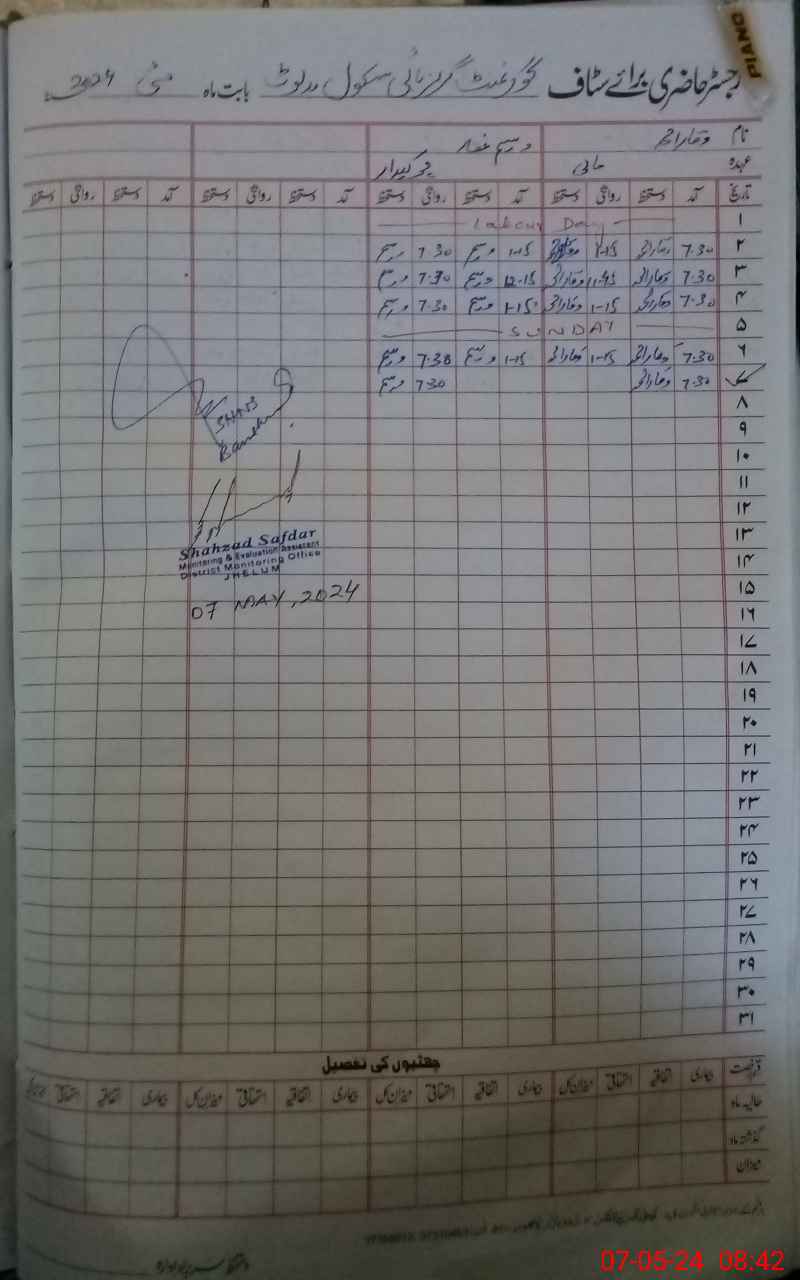 PIANO
رجسٹر حاضری برائے سٹاف گورنمنٹ گرلز ہائی سکول بابت ماہ مئی 2024
نام وقار احمد وسیم
عہدہ مالی چوکیدار
تاریخ آمد دستخط روانگی دستخط آمد دستخط روانگی دستخط آمد دستخط روانگی دستخط آمد دستخط روانگی دستخط
۱ Labour Day
۲ 7.30 وقار احمد 1-15 وقار احمد 1-15 وسیم 7.30 وسیم
۳ 7.30 وقار احمد 11.45 وقار احمد 12-15 وسیم 7.30 وسیم
۴ 7.30 وقار احمد 1-15 وقار احمد 1-15 وسیم 7.30 وسیم
۵ SUNDAY
۶ 7.30 وقار احمد 1-15 وقار احمد 1-15 وسیم 7.30 وسیم
۷ 7.30 وقار احمد 7.30 وسیم
۸
۹
۱۰
۱۱
۱۲
۱۳
۱۴
۱۵
۱۶
۱۷
۱۸
۱۹
۲۰
۲۱
۲۲
۲۳
۲۴
۲۵
۲۶
۲۷
۲۸
۲۹
۳۰
۳۱
Shahzad Safdar
Monitoring & Evaluation Assistant
District Monitoring Office
JHELUM
07 MAY, 2024
چھٹیوں کی تفصیل
رخصت بیماری اتفاقیہ استحقاقی میزان کل بیماری اتفاقیہ استحقاقی میزان کل بیماری اتفاقیہ استحقاقی میزان کل بیماری اتفاقیہ استحقاقی میزان کل
حالیہ ماہ
گذشتہ ماہ
میزان
07-05-24 08:42